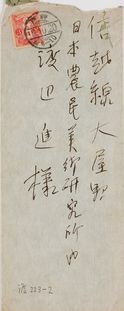 信越線大屋駅
日本農民美術研究所内
渡辺進様
渡223-2